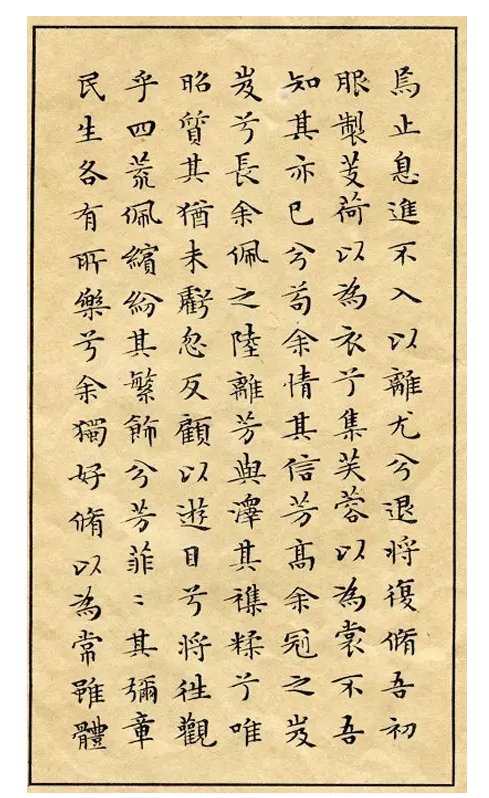 焉止息進不入以離尤兮退將復脩吾初
服製芰荷以為衣兮集芙蓉以為裳不吾
知其亦已兮苟余情其信芳高余冠之岌
岌兮長余佩之陸離芳與澤其雜糅兮唯
昭質其猶未虧忽反顧以遊目兮將往觀
乎四荒佩繽紛其繁飾兮芳菲〻其彌章
民生各有所樂兮余獨好脩以為常雖體